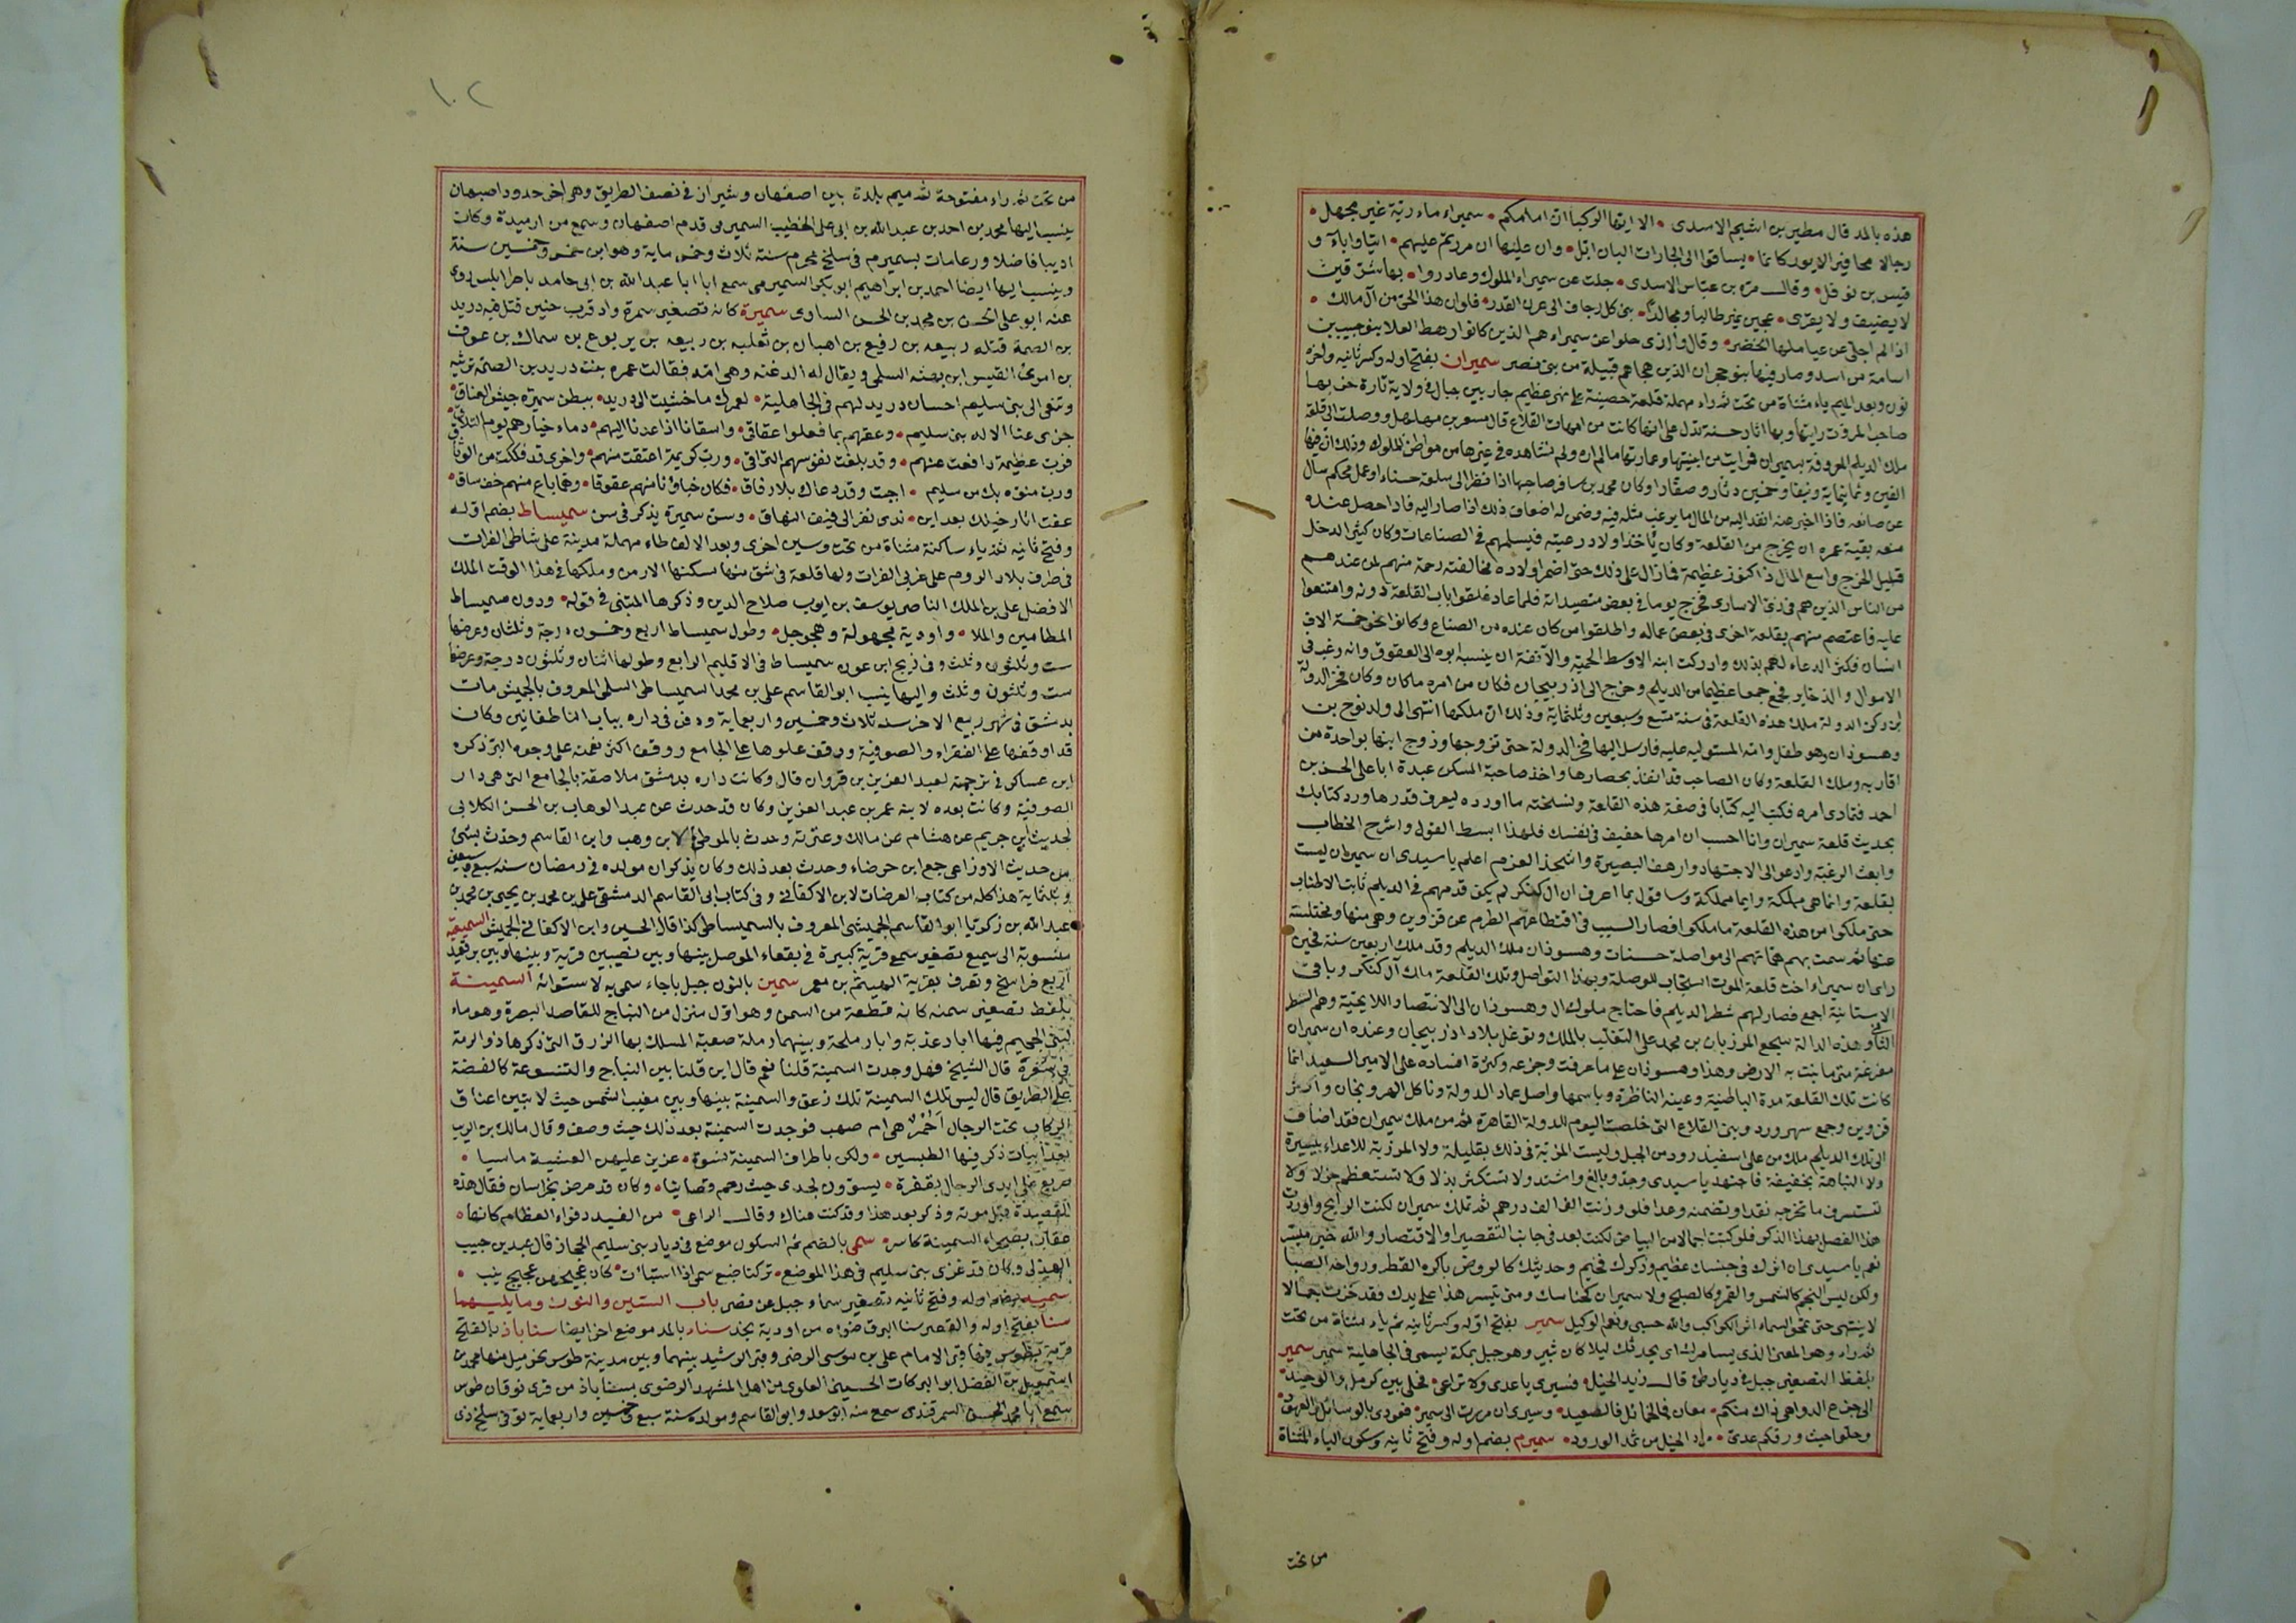 هذه بالمد قال مطير بن اشيم الاسدى • الا ايها الركبان ان امامكم • سميراء ماء ريّه غير مجهل •
رجالا مفاقير الايور كانما • يساقوا الى الجارات البان ايّل • وان عليها ان مررتم عليهم • ابيا واباء و
قيس بن نوفل • وقال مرّه بن عبّاس الاسدى • جلت عن سميراء الملوك وغادروا • بها شرّ قين
لا يضيف ولا يقرى • هجين نمير طالبا ومجالدا • بنى كل زحاف الى عرن القدر • فلو ان هذا الحى من آل مالك •
اذا لم اجلّى عن عيا ملها الخضر • وقال والذى جلوا عن سميراء هم الذين كانوا رهط العلاء بنو حبيب بن
اسامة من اسد وصار فيها بنو حجران الذين هجاهم قبيلة من بنى نصر سميران بفتح اوله وكسر ثانيه واخره
نون وبعد الميم ياء مثناة من تحت ثم راء مهملة قلعة حصينة على نهر عظيم جار بين جبال فى ولاية تارم خربها
صاحب الموت رايتها وبها اثار حسنة تدل على انها كانت من امهات القلاع قال مسعر بن مهلهل ووصلت الى قلعة
ملك الديلم المعروفة بسميران فرايت من ابنيتها وعمارتها ما لم اره ولم نشاهده فى غيرها من مواطن الملوك وذلك ان فيها
الفين وثمانماية ونيفا وخمسين دارا وصغارا وكان محمد بن مسافر صاحبها اذا نظر الى سلعة حسناء او عمل محكم سال
عن صانعه فاذا اخبر عنه انفذ اليه من المال ما يرغب مثله فيه وضمن له اضعاف ذلك اذا صار اليه فاذا حصل عنده
منعه بقية عمره ان يخرج من القلعة وكان ياخذ اولاد رعيته فيسلمهم فى الصناعات وكان كثير الدخل
قليل الخرج واسع المال ذا كنوز عظيمة فما زال على ذلك حتى اضمر اولاده مخالفته رحمة منهم لمن عندهم
من الناس الذين هم فى زى الاسارى فخرج يوما فى بعض متصيداته فلما عاد غلقوا باب القلعة دونه وامتنعوا
عليه فاعتصم منهم بقلعة اخرى فى بعض عماله واطلقوا من كان عنده من الصناع وكانوا نحو خمسة الاف
انسان فكثر الدعاء لهم بذلك وادركت ابنه الاوسط الحمية والانفة ان ينسبه ابوه الى العقوق وانه رغب فى
الاموال والذخاير فجمع جمعا عظيما من الديلم وخرج الى اذربيجان فكان من امره ما كان وكان فخر الدولة
ابن ركن الدولة ملك هذه القلعة فى سنة تسع وسبعين وثلثماية وذلك ان ملكها انتهى الى ولد نوح بن
وهسوذان وهو طفل وامه المستوليه عليه فارسل اليها فخر الدولة حتى تزوجها وزوج ابنها بواحدة من
اقاربه وملك القلعة وكان الصاحب قد انفذ بحصارها واخذ صاحبة المسكن عبدة ابا على الحسن بن
احمد فتمادى امره فكتب اليه كتابا فى صفة هذه القلعة ونسخته ما اورده ليعرف قدرها ورد كتابك
بحديث قلعة سميران وانا احسب ان امرها خفيف فى نفسك فلهذا ابسط القول واشرح الخطاب
وابعث الرغبة وادعو الى الاجتهاد وارهف البصيرة واشحذ العزم اعلم يا سيدى ان سميران ليست
بقلعة وانما هى مملكة وانما مملكة وساقول بما اعرف ان ال كنكر لم يكن قدمهم فى الديلم ثابت الاطناب
حتى ملكوا من هذه القلعة ما ملكوا فصار السبب فى اقتطاعهم الطرم عن قزوين وهى منها ومختلسة
عنها ثم سمت بهم همتهم الى مواصلة حسنات وهسوذان ملك الديلم وقد ملك اربعين سنة فحين
راى ان سميراء اخت قلعة الموت استجاب للوصلة وبهذا التواصل وتلك القلعة ملك آل كنكر وباقى
الاستانية اجمع فصار لهم شطر الديلم فاحتاج ملوك ال وهسوذان الى الانتصاء واللايحية وهم الشطر
الثانى وهذه الدالة سجع المرزبان بن محمد على التغلب بالملك وتوغل بلاد اذربيجان وعنده ان سميران
مفزعة متى ما نبت به الارض وهذا وهسوذان على ما عرفت وجزعه وكثرة افساده على الامير السعيد انما
كانت تلك القلعة مدة الباطنية وعينه الناظرة وباسمها واصل عماد الدولة وناكل ابهر وزنجان واكثر
قزوين وجمع سهرورد وبنى القلاع التى خلصت اليوم للدولة القاهرة ثم من ملك سميران فقد اضاف
الى ملك الديلم ملك من على اسفيذ رود من الجبل وليست المزية فى ذلك بقليلة ولا المرزية للاعداء بيسيرة
ولا النباهة بخفيفة فاجتهد يا سيدى وجد وبالغ واشتد ولا تستكثر بذلا ولا تستعظم جزلا ولا
تستسرف ما تخرجه نقدا وتضمنه وعدا فلو وزنت الف الف درهم ثم تملك سميران لكنت الرابح واوردت
هذا الفصل بهذا الذكر فلو كتبت اجمالا من البياض لكنت بعد فى جانب التقصير والاقتصار والله خير ميسر
نعم يا سيدى ان اثرك فى حبسك عظيم وذكرك فخيم وحديثك كالروض باكره القطر وروحه الصبا
ولكن ليس النجم كالشمس والقمر كالصبح ولا سميران كجناسك ومتى تيسر هذا على يدك فقد حزت جمالا
لا ينتهى حتى تمحو السماء اثر الكواكب والله حسبى ونعم الوكيل سمير بفتح اوله وكسر ثانيه ثم ياء مثناة من تحت
ثم راء وهو المعنى الذى يسامرك اى يحدثك ليلا كان ثبير وهو جبل بمكة يسمى فى الجاهلية سمير سمير
بلفظ التصغير جبل فى ديار طى قال زيد الخيل • فسيرى يا عدى ولا تراعى • فحلى بين كرمل والوحيد •
الى جزع الدواهى ذاك منكم • مغان فالخمائل فالصعيد • وسيرى ان مررت الى سمير • فعودى بالوسائل والعهود •
وحلوا حيث ورقكم عدى • مراد الخيل من ثمد الورود • سميرم بضم اوله وفتح ثانيه وسكون الياء المثناة
من تحت
١٠٢
من تحت ثم راء مفتوحة ثم ميم بلدة بين اصفهان وشيراز فى نصف الطريق وهى اخر حدود اصبهان
ينسب اليها محمد بن احمد بن عبد الله بن ابى على الخطيب السميرمى قدم اصفهان وسمع من ارميدة وكان
اديبا فاضلا ورعا مات بسميرم فى سلخ محرم سنة ثلاث وخمس ماية وهو ابن خمس وخمسين سنة
وينسب اليها ايضا احمد بن ابراهيم ابو بكر السميرمى سمع ابا ابا عبد الله بن ابى حامد باطرابلس روى
عنه ابو على الحسن بن محمد بن الحسن الساوى سميرة كانه تصغير سمرة واد قرب حنين قتل فيه دريد
بن الصمة قتله ربيعه بن رفيع بن اهبان بن ثعلبه بن ربيعه بن يربوع بن سماك بن عوف
بن امرئ القيس ابن بهثه السلمى ويقال له الدغنه وهى امه فقالت عمره بنت دريد بن الصمة ترثيه
وتنعى الى بنى سليم احسان دريد لهم فى الجاهلية • لعمرك ما خشيت الى دريد • ببطن سميرة جيش العناق •
جزى عنا الاله بنى سليم • وعقهم بما فعلوا عقاق • واسقانا اذا عدنا اليهم • دماء خيارهم يوم التلاق
فرب عظيمة دافعت عنهم • وقد بلغت نفوسهم التراقى • ورب كريمة اعتقت منهم • واخرى قد فككت من الوثاق
ورب منوه بك من سليم • اجبت وقد دعاك بلا رفاق • فكان جزاؤنا منهم عقوقا • وهما ماع منهم خف ساق •
عفت اثار خيلك بعد اين • بذى نفر الى فيف النهاق • وسن سميرة يذكر فى سن سميساط بضم اوله
وفتح ثانيه ثم ياء ساكنة مثناة من تحت وسين اخرى وبعد الالف طاء مهملة مدينة على شاطى الفرات
فى طرف بلاد الروم على غربى الفرات ولها قلعة فى شق منها يسكنها الارمن وملكها فى هذا الوقت الملك
الافضل على بن الملك الناصر يوسف بن ايوب صلاح الدين وذكرها المتنبى فى قوله • ودون سميساط
المطامير والملا • واودية مجهولة وهجوجل • وطول سميساط اربع وخمسون درجة وثلثان وعرضها
ست وثلثون وثلث وفى زيج ابن عون سميساط فى الاقليم الرابع وطولها اثنان وثلثون درجة وعرضها
ست وثلثون وثلث واليها ينسب ابو القاسم على بن محمد السميساطى السلمى المعروف بالجميش مات
بدمشق فى شهر ربيع الاخر سنه ثلاث وخمسين واربعماية ودفن فى داره بباب الناطفانيين وكان
قد اوقفها على الفقراء والصوفية ووقف علوها على الجامع ووقف اكثر نعمته على وجوه البر ذكره
ابن عساكر فى ترجمة لعبد العزيز بن قروان قال وكانت داره بدمشق ملاصقة بالجامع التى هى دار
الصوفية وكانت بعده لابنه عمر بن عبد العزيز وكان قد حدث عن عبد الوهاب بن الحسن الكلابى
لحديث ابن جريم عن هشام عن مالك وعنزته وحدث بالموطى لابن وهب وابن القاسم وحدث بشئ
من حديث الاوزاعى جمع ابن حرضاء وحدث بعد ذلك وكان يذكر ان مولده فى رمضان سنه سبع وسبعين
وثلثماية هذا كله من كتاب العرضات لابن الاكفانى وفى كتاب ابى القاسم الدمشقى على بن محمد بن يحيى بن محمد بن
عبد الله بن زكريا ابو القاسم الجميشى المعروف بالسميساطى كذا قال الحسين وابن الاكفانى الجميش السميعيه
منسوبة الى سميع تصغير سمع قرية كبيرة فى بقعاء الموصل بينها وبين نصيبين قرية وبينها وبين برقعيد
اربع فراسخ وتعرف بقرية الهيثم بن معمر سمين بالنون جبل باجاء سمى به لاستوائه السمينة
بلفظ تصغير سمنه كانه قطعة من السمن وهو اول منزل من النباج للقاصد البصرة وهو ماء
لبنى الهجيم فيها ابار عذبة وابار ملحة وبينهما رملة صعبة المسلك بها الزرق التى ذكرها ذو الرمة
فى شعره قال الشيخ فهل وجدت السمينة قلنا نعم قال اين قلنا بين النباج والتنسوعة كالفضة
على الطريق قال ليس تلك السمينة تلك زعق والسمينة بينها وبين مغيب الشمس حيث لا تبين اعناق
الركاب تحت الرجال احمر هى ام صهب فوجدت السمينة بعد ذلك حيث وصف وقال مالك بن الريب
بعد ابيات ذكر فيها الطبسين • ولكن باطراف السمينة نسوة • عزيز عليهن العشية ما بيا •
صريع على ايدى الرجال بقفرة • يسوون لحدى حيث حم قضائيا • وكان قد مرض بخراسان فقال هذه
القصيدة قبل موته وذكر بعد هذا وقد كنت هناك وقال الراعى • من الغيد دفواء العظام كانها •
عقاب بصحراء السمينة كاسر • سمى بالضم ثم السكون موضع فى ديار بنى سليم الحجاز قال عبد بن حبيب
الهذلى وكان قد غزى بنى سليم فى هذا الموضع • تركنا ضبع سمى اذا استباءت • كان عجيجهن عجيج نيب •
سميه بضم اوله وفتح ثانيه تصغير سماء جبل عن نصر باب السين والنون وما يليهما
سنا بفتح اوله والقصر سنا البرق ضوءه من اودية نجد سناء بالمد موضع اخر ايضا سناباذ بالفتح
قرية بطوس فيها قبر الامام على بن موسى الرضى وقبر الرشيد بينهما وبين مدينة طوس نحو ميل منها محمد بن
اسمعيل بن الفضل ابو البركات الحسينى العلوى من اهل المشهد الرضوى بسناباذ من قرى نوقان طوس
سمع ابا محمد الحسن السمرقندى سمع منه ابو سعد وابو القاسم ومولده سنة سبع وخمسين واربعماية توفى سلخ ذى